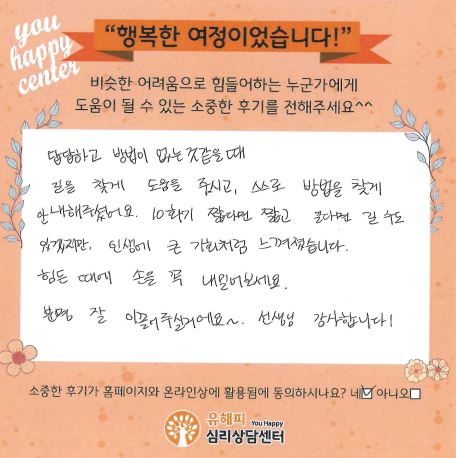 you
happy
center
“행복한 여정이었습니다!”
비슷한 어려움으로 힘들어하는 누군가에게
도움이 될 수 있는 소중한 후기를 전해주세요^^
답답하고 방법이 없는것같을때
길을 찾게 도움을 주시고, 스스로 방법을 찾게
안내해주셨어요. 10회기 짧다면 짧고 길다면 길 수도
있겠지만, 인생에 큰 기회처럼 느껴졌습니다.
힘든 때에 손을 꼭 내밀어보세요.
분명 잘 이끌어주실거에요~. 선생님 감사합니다!
소중한 후기가 홈페이지와 온라인상에 활용됨에 동의하시나요? 네☑ 아니오□
유해피 You Happy
심리상담센터